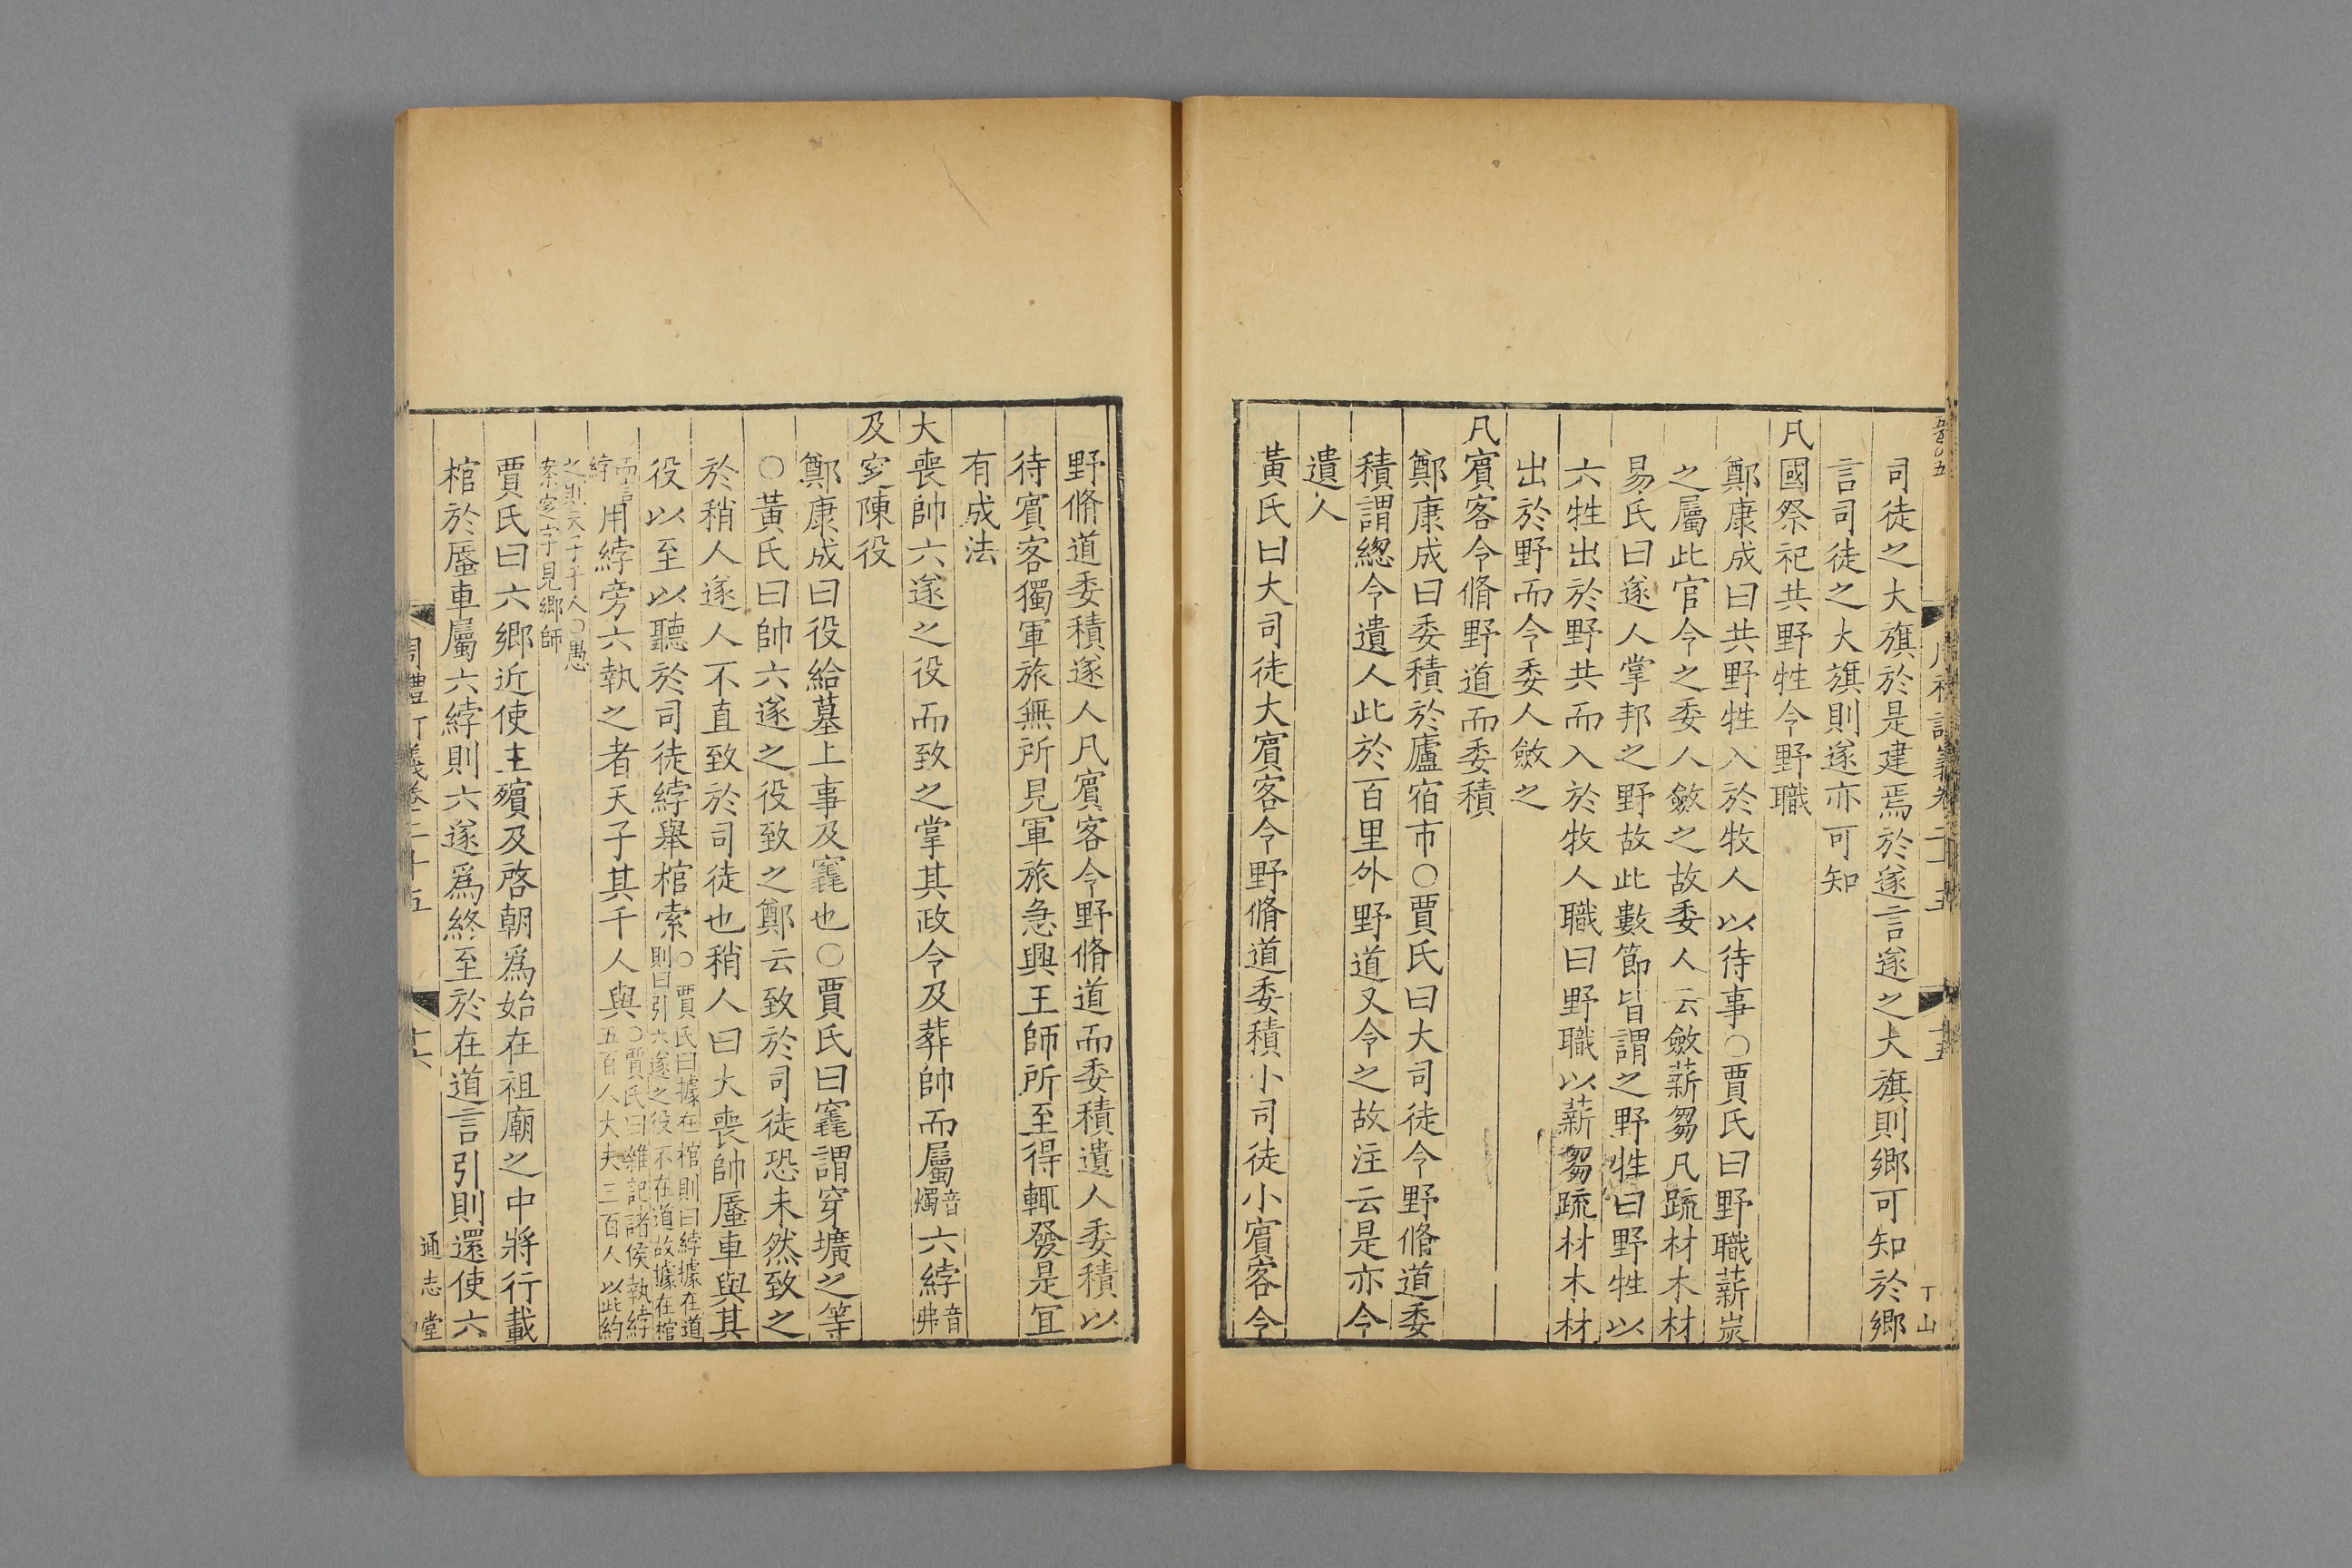 司徒之大旗於是建焉於遂言遂之大旗則鄉可知於鄉
言司徒之大旗則遂亦可知
凡國祭祀共野牲令野職
鄭康成曰共野牲入於牧人以待事○賈氏曰野職薪炭
之屬此官令之委人斂之故委人云斂薪芻凡疏材木材
易氏曰遂人掌邦之野故此數節皆謂之野牲曰野牲以
六牲出於野共而入於牧人職曰野職以薪芻疏材木材
出於野而令委人斂之
凡賓客令脩野道而委積
鄭康成曰委積於廬宿市○賈氏曰大司徒令野脩道委
積謂緫令遺人此於百里外野道又令之故注云是亦令
遺人
黃氏曰大司徒大賓客令野脩道委積小司徒小賓客令
野脩道委積遂人凡賓客令野脩道而委積遺人委積以
待賓客獨軍旅無所見軍旅急興王師所至得輒發是宜
有成法
大喪帥六遂之役而致之掌其政令及葬帥而屬音燭六綍音弗
及窆陳役
鄭康成曰役給墓上事及竁也○賈氏曰竁謂穿壙之等
○黃氏曰帥六遂之役致之鄭云致於司徒恐未然致之
於稍人遂人不直致於司徒也稍人曰大喪帥蜃車與其
役以至以聽於司徒綍舉棺索○賈氏曰據在棺則曰綍據在道則曰引六遂之役不在道故據在棺
而言綍用綍旁六執之者天子其千人與○賈氏曰雜記諸侯執綍五百人大夫三百人以此約
之則天子千人○愚案窆字見鄉師
賈氏曰六鄉近使主殯及啓朝爲始在祖廟之中將行載
棺於蜃車屬六綍則六遂爲終至於在道言引則還使六
周禮訂義卷二十五
十六
通志堂